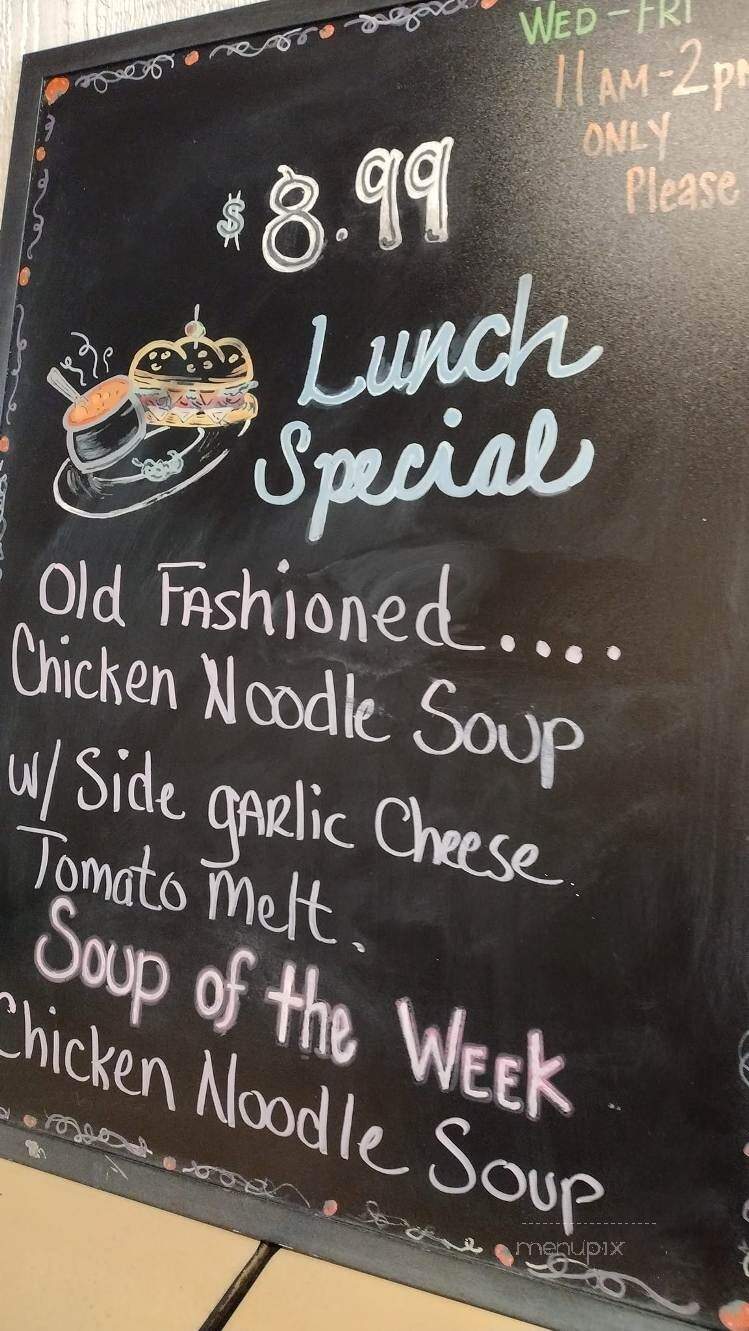 WED-FRI
11AM-2pm
ONLY
Please
$8.99
Lunch
Special
Old FAShioned....
Chicken Noodle Soup
w/ Side gARlic Cheese
Tomato Melt.
Soup of the WEEK
Chicken Noodle Soup
menupix